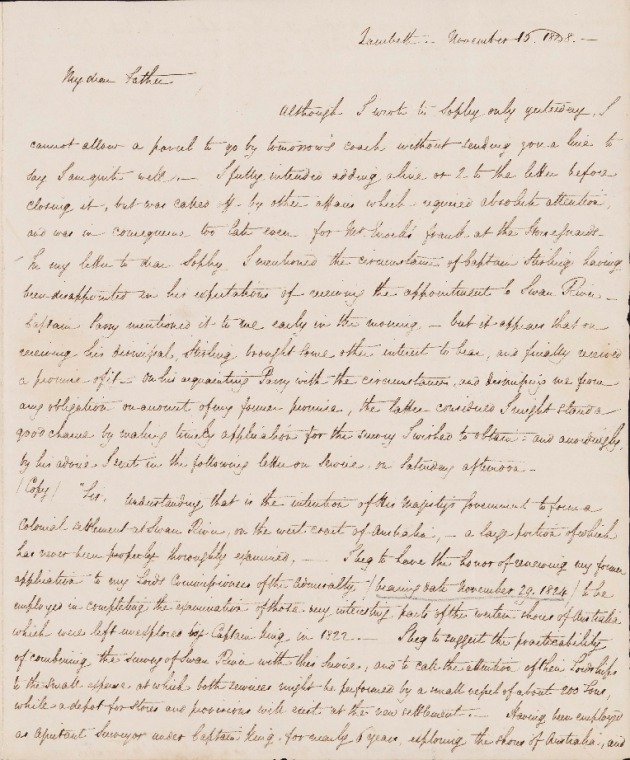 Lambeth — November 15. 1828. —
My dear Father
Although I wrote to Sophy only yesterday, I
cannot allow a parcel to go by tomorrow's coach without sending you a line to
say I am quite well. — I fully intended adding a line or 2 to the letter before
closing it, but was called off by other affairs which required absolute attention,
and was in consequence too late even for Mr. frank at the Horseguards.
In my letter to dear Sophy I mentioned the circumstance of Captain Stirling having
been disappointed in his expectations of receiving the appointment to Swan River —
Captain Parry mentioned it to me early in the morning, — but it appears that on
receiving his dismissal, Stirling brought some other interest to bear, and finally received
a promise of it — On his acquainting Parry with the circumstances, and dismissing me from
any obligation on account of my former promise, the latter considered I might stand a
good chance by making timely application for the survey I wished to obtain: and accordingly,
by his advice I sent in the following letter on Service, on Saturday afternoon —
(Copy) "Sir, Understanding that is the intention of His Majesty's Government to form a
Colonial settlement at Swan River, on the west coast of Australia, — a large portion of which
has never been properly thoroughly examined, — I beg to have the honor of renewing my former
application to my Lords Commissioners of the Admiralty (bearing date November 29. 1824) to be
employed in completing the examination of those very interesting parts of the western shores of Australia
which were left unexplored by Captain King in 1822. — I beg to suggest the practicability
of combining the survey of Swan River with this Service, and to call the attention of their Lordships
to the small expense at which both services might be performed by a small vessel of about 200 Tons,
while a depot for stores and provisions will exist at the new settlement. — Having been employed
as assistant Surveyor under Captain King, for nearly 6 years, exploring the shores of Australia, and